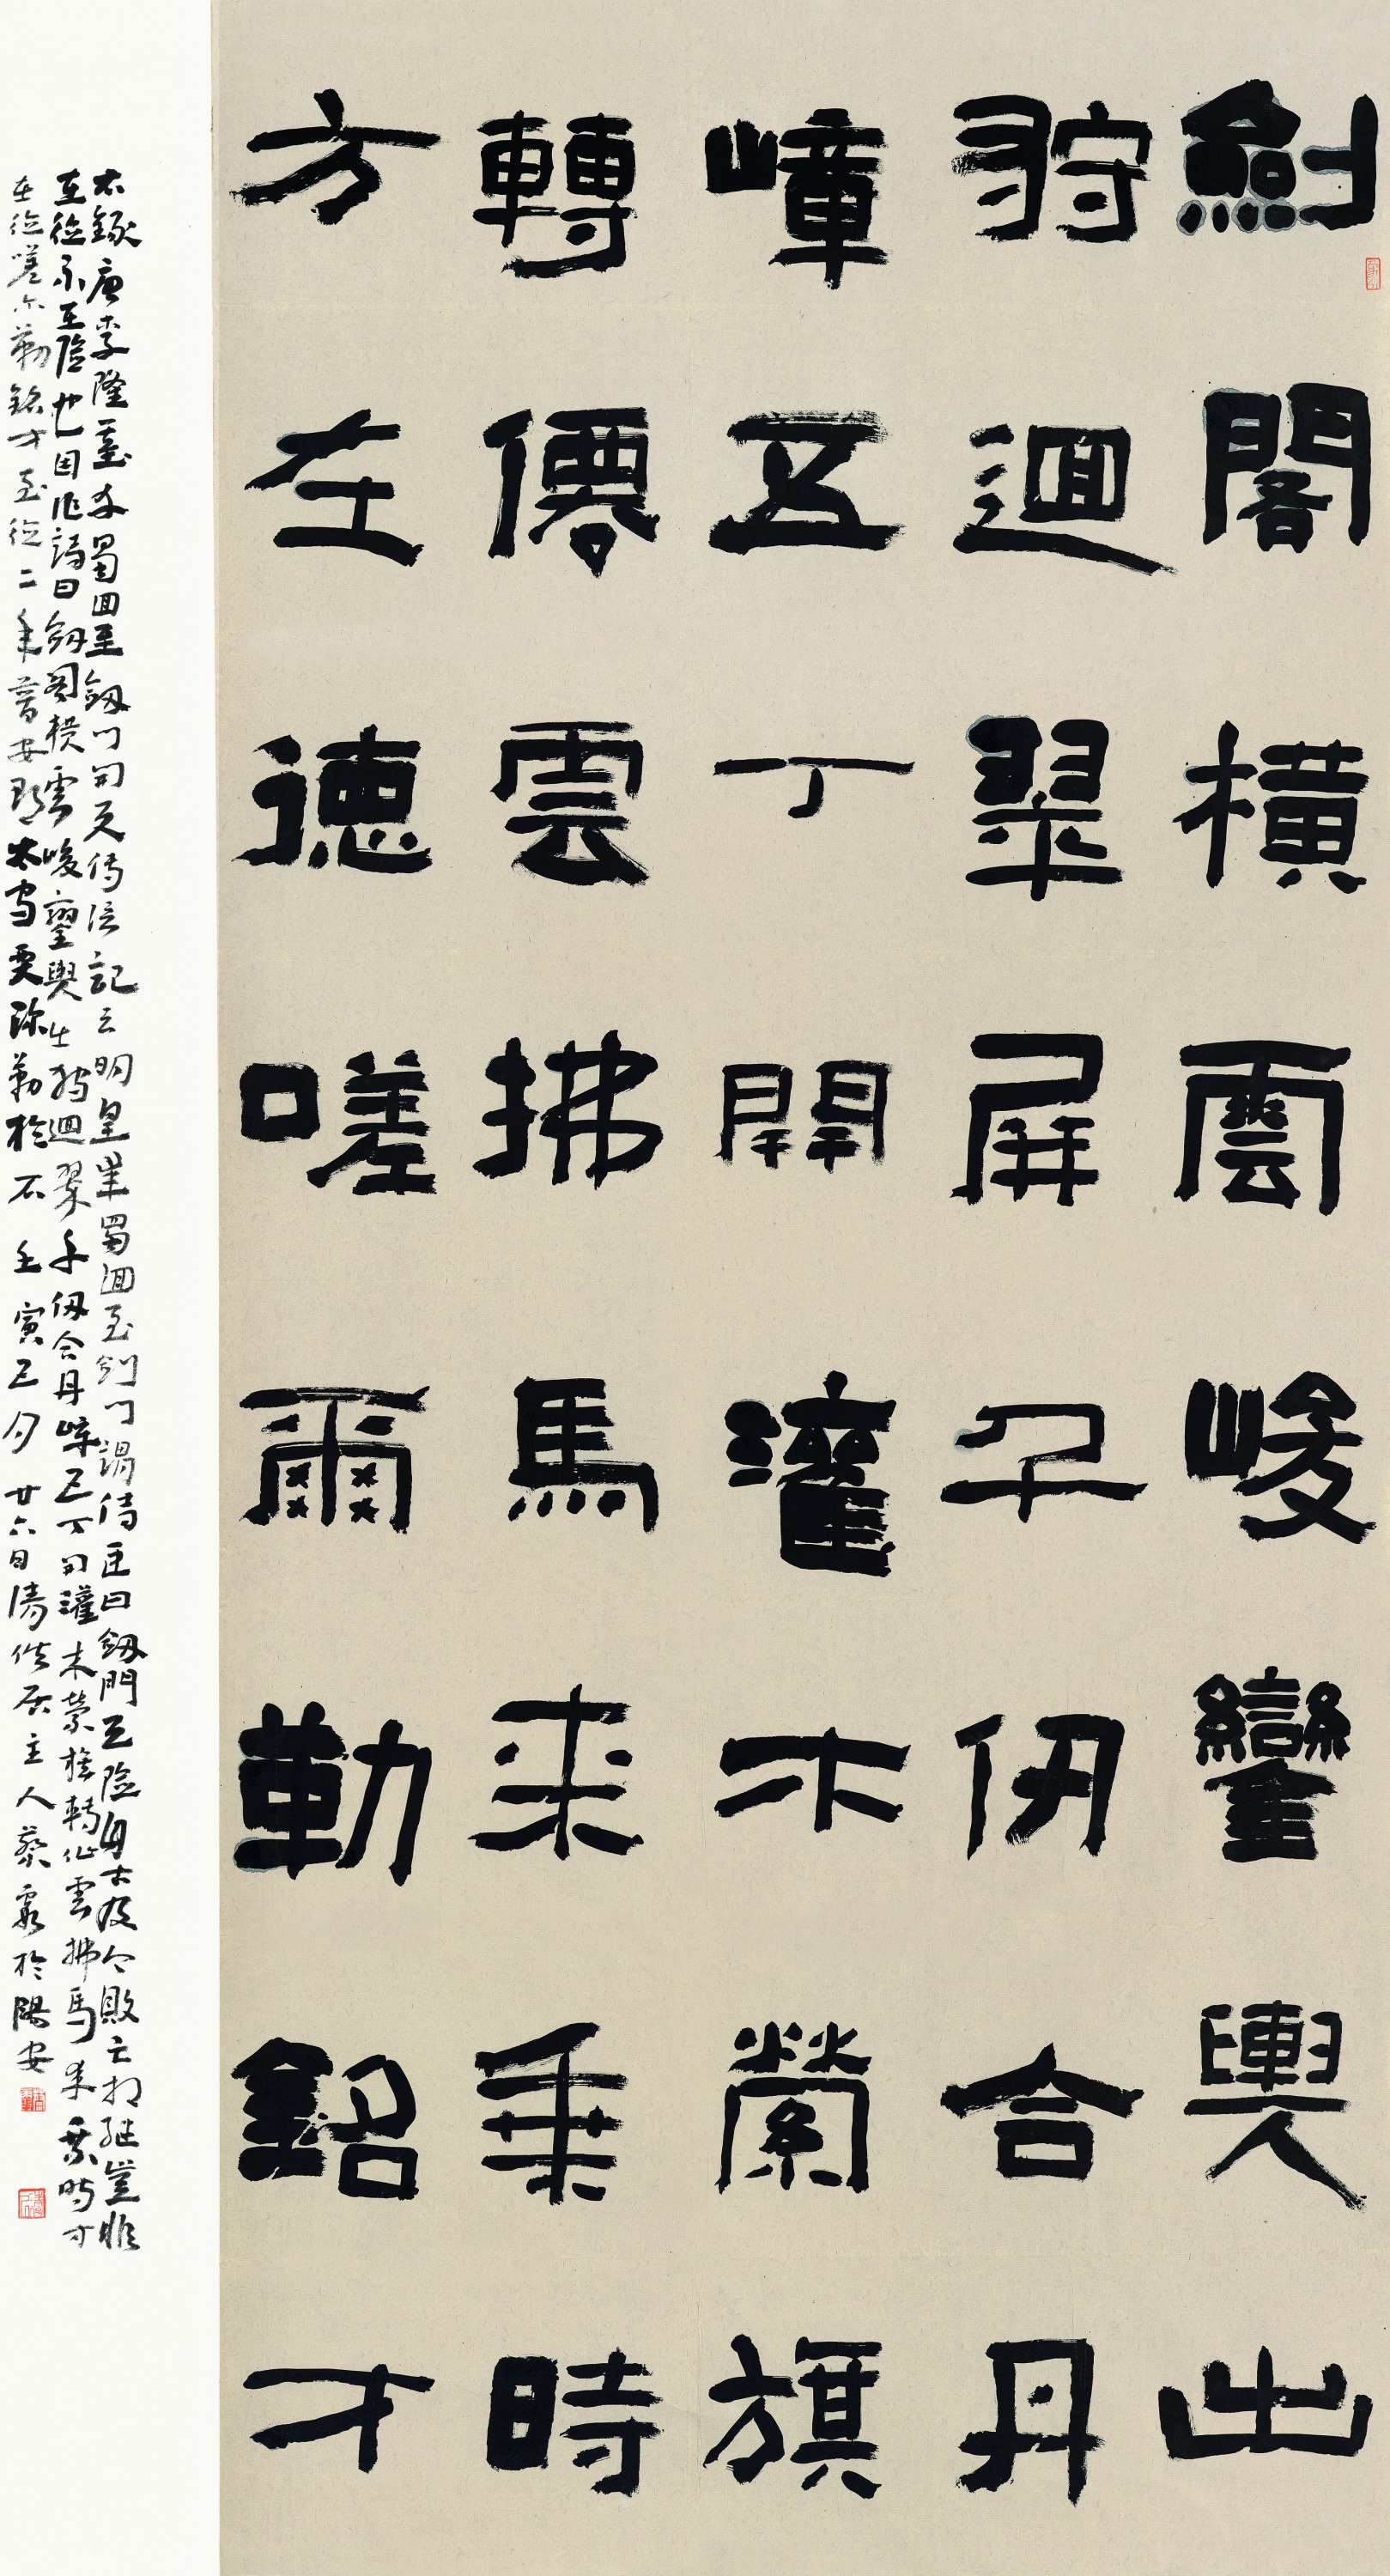 劍閣橫雲峻鑾輿出
狩迴翠屏千仞合丹
嶂五丁開灌木縈旗
轉僊雲拂馬来乗時
方在德嗟爾勒銘才
右錄唐李隆基幸蜀回至劔門開天傳信記云明皇幸蜀迴至劍門謂侍臣曰劔門天險自古及今敗亡相继豈非
在德不在險也因作詩曰劔閣橫雲峻鑾輿出狩迴翠千仞合丹嶂五丁開灌木縈旌轉仙雲拂馬来乗時方
在德嗟尓勒銘才至德二年普安郡太守賈深勒於石壬寅五月廿六日清供居主人蔡於陽安